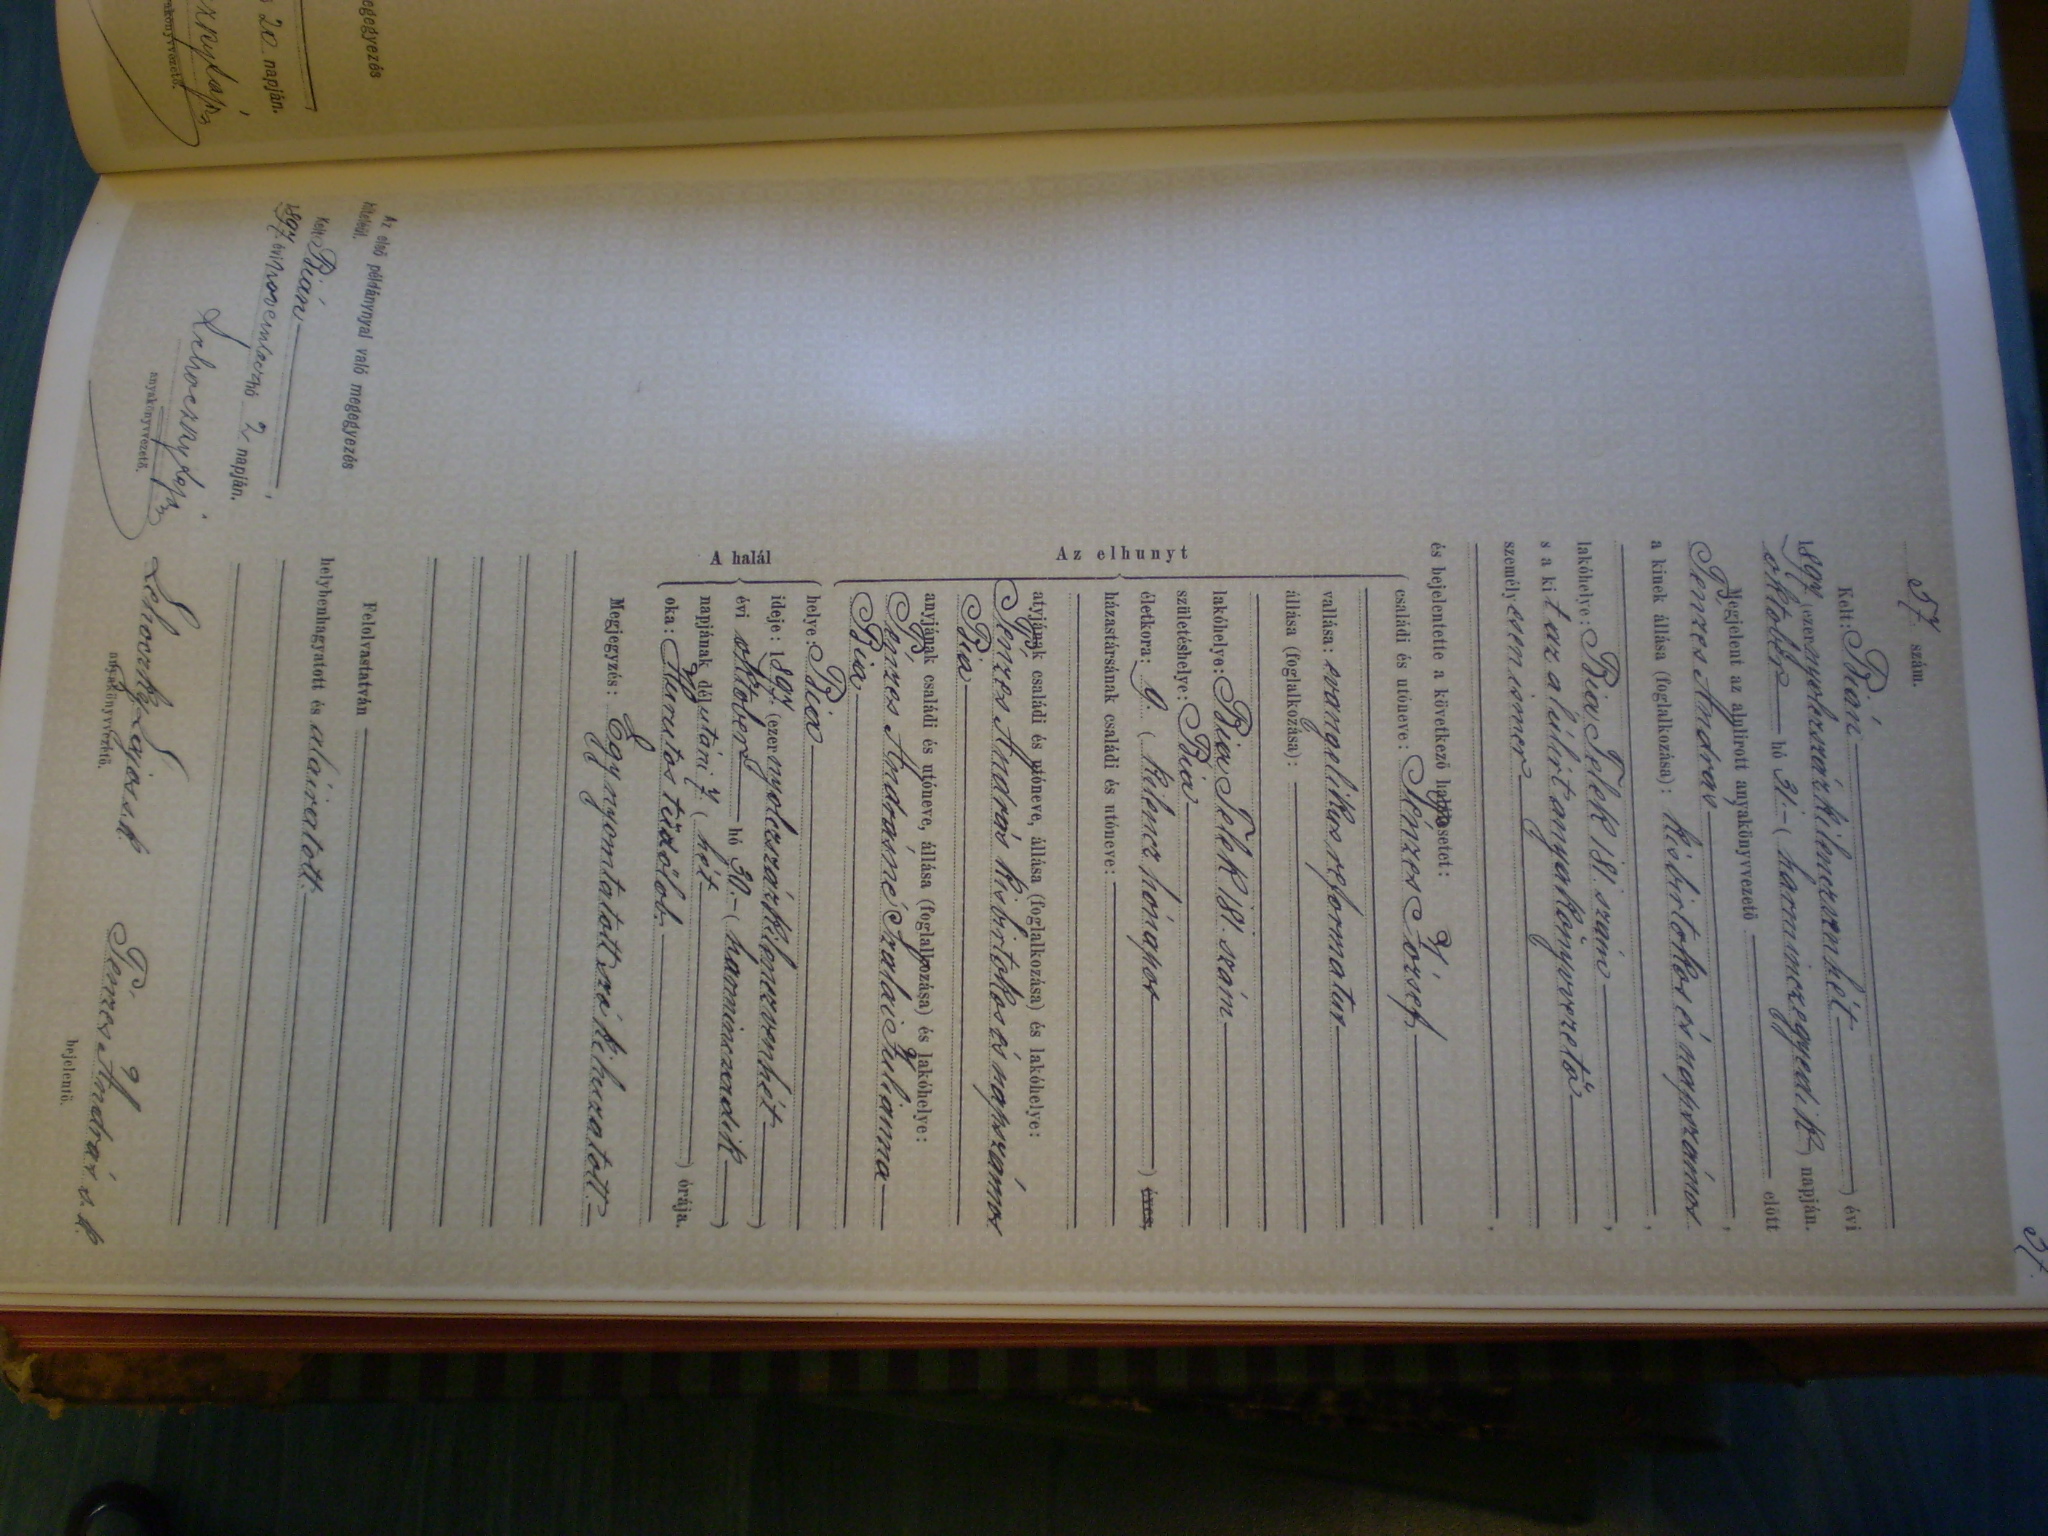 37.
57. szám.
Kelt: Bián
1897. (ezernyolczszázkilenczvenhét) évi
október hó 31. (harminczegyedik) napján.
Megjelent az alulirott anyakönyvvezető előtt
Penzes András,
a kinek állása (foglalkozása): kisbirtokos és napszámos,
lakóhelye: Bia Telek 181. szám,
s a kit az alúlirt anyakönyvvezető
személyesen ismer,
és bejelentette a következő halálesetet:
családi és utóneve: Penzes József
vallása: evangelikus reformatus
állása (foglalkozása):
lakóhelye: Bia Telek 181. szám
születéshelye: Bia
életkora: 9. (kilencz hónapos) éves,
házastársának családi és utóneve:
Az elhunyt
atyjának családi és utóneve, állása (foglalkozása) és lakóhelye:
Penzes András kisbirtokos és napszámos
Bia
anyjának családi és utóneve, állása (foglalkozása) és lakóhelye:
Penzes Andrásné Szalai Julianna
Bia
A halál
helye: Bia
ideje: 1897. (ezernyolczszázkilenczvenhét)
évi október hó 30. (harminczadik)
napjának délutáni 7. (hét) órája.
oka: Hurutos tüdőlob.
Megjegyzés: Egy nyomtatott szó kihuzatott.
Felolvastatván
helybenhagyatott és aláiratott.
Lehoczky Lajos s. k.
anyakönyvvezető.
Penzes András s. k.
bejelentő.
Az első példánynyal való megegyezés
hiteléül.
Kelt Bián,
1897. évi november hó 2 napján.
Lehoczky Lajos
anyakönyvvezető.
megegyezés
20. napján.
anyakönyvvezető.